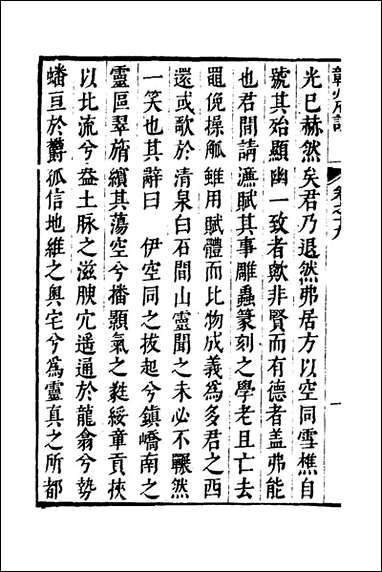 光已赫然矣君乃退然弗居方以空同雪樵自
號其殆顯幽一致者歟非賢而有德者盖弗能
也君間請濂賦其事雕蟲篆刻之學老且亡去
黽俛操觚雖用賦體而比物成義為多君之西
還或歌於清泉白石間山靈聞之未必不囅然
一笑也其辭曰　伊空同之拔起兮鎮嶠南之
靈區翠旓繽其蕩空兮播顥氣之㲯綏章貢挾
以北流兮盎土脉之滋腴宂遥通於龍翕兮勢
蟠亘於欝孤信地維之輿宅兮爲靈真之所都